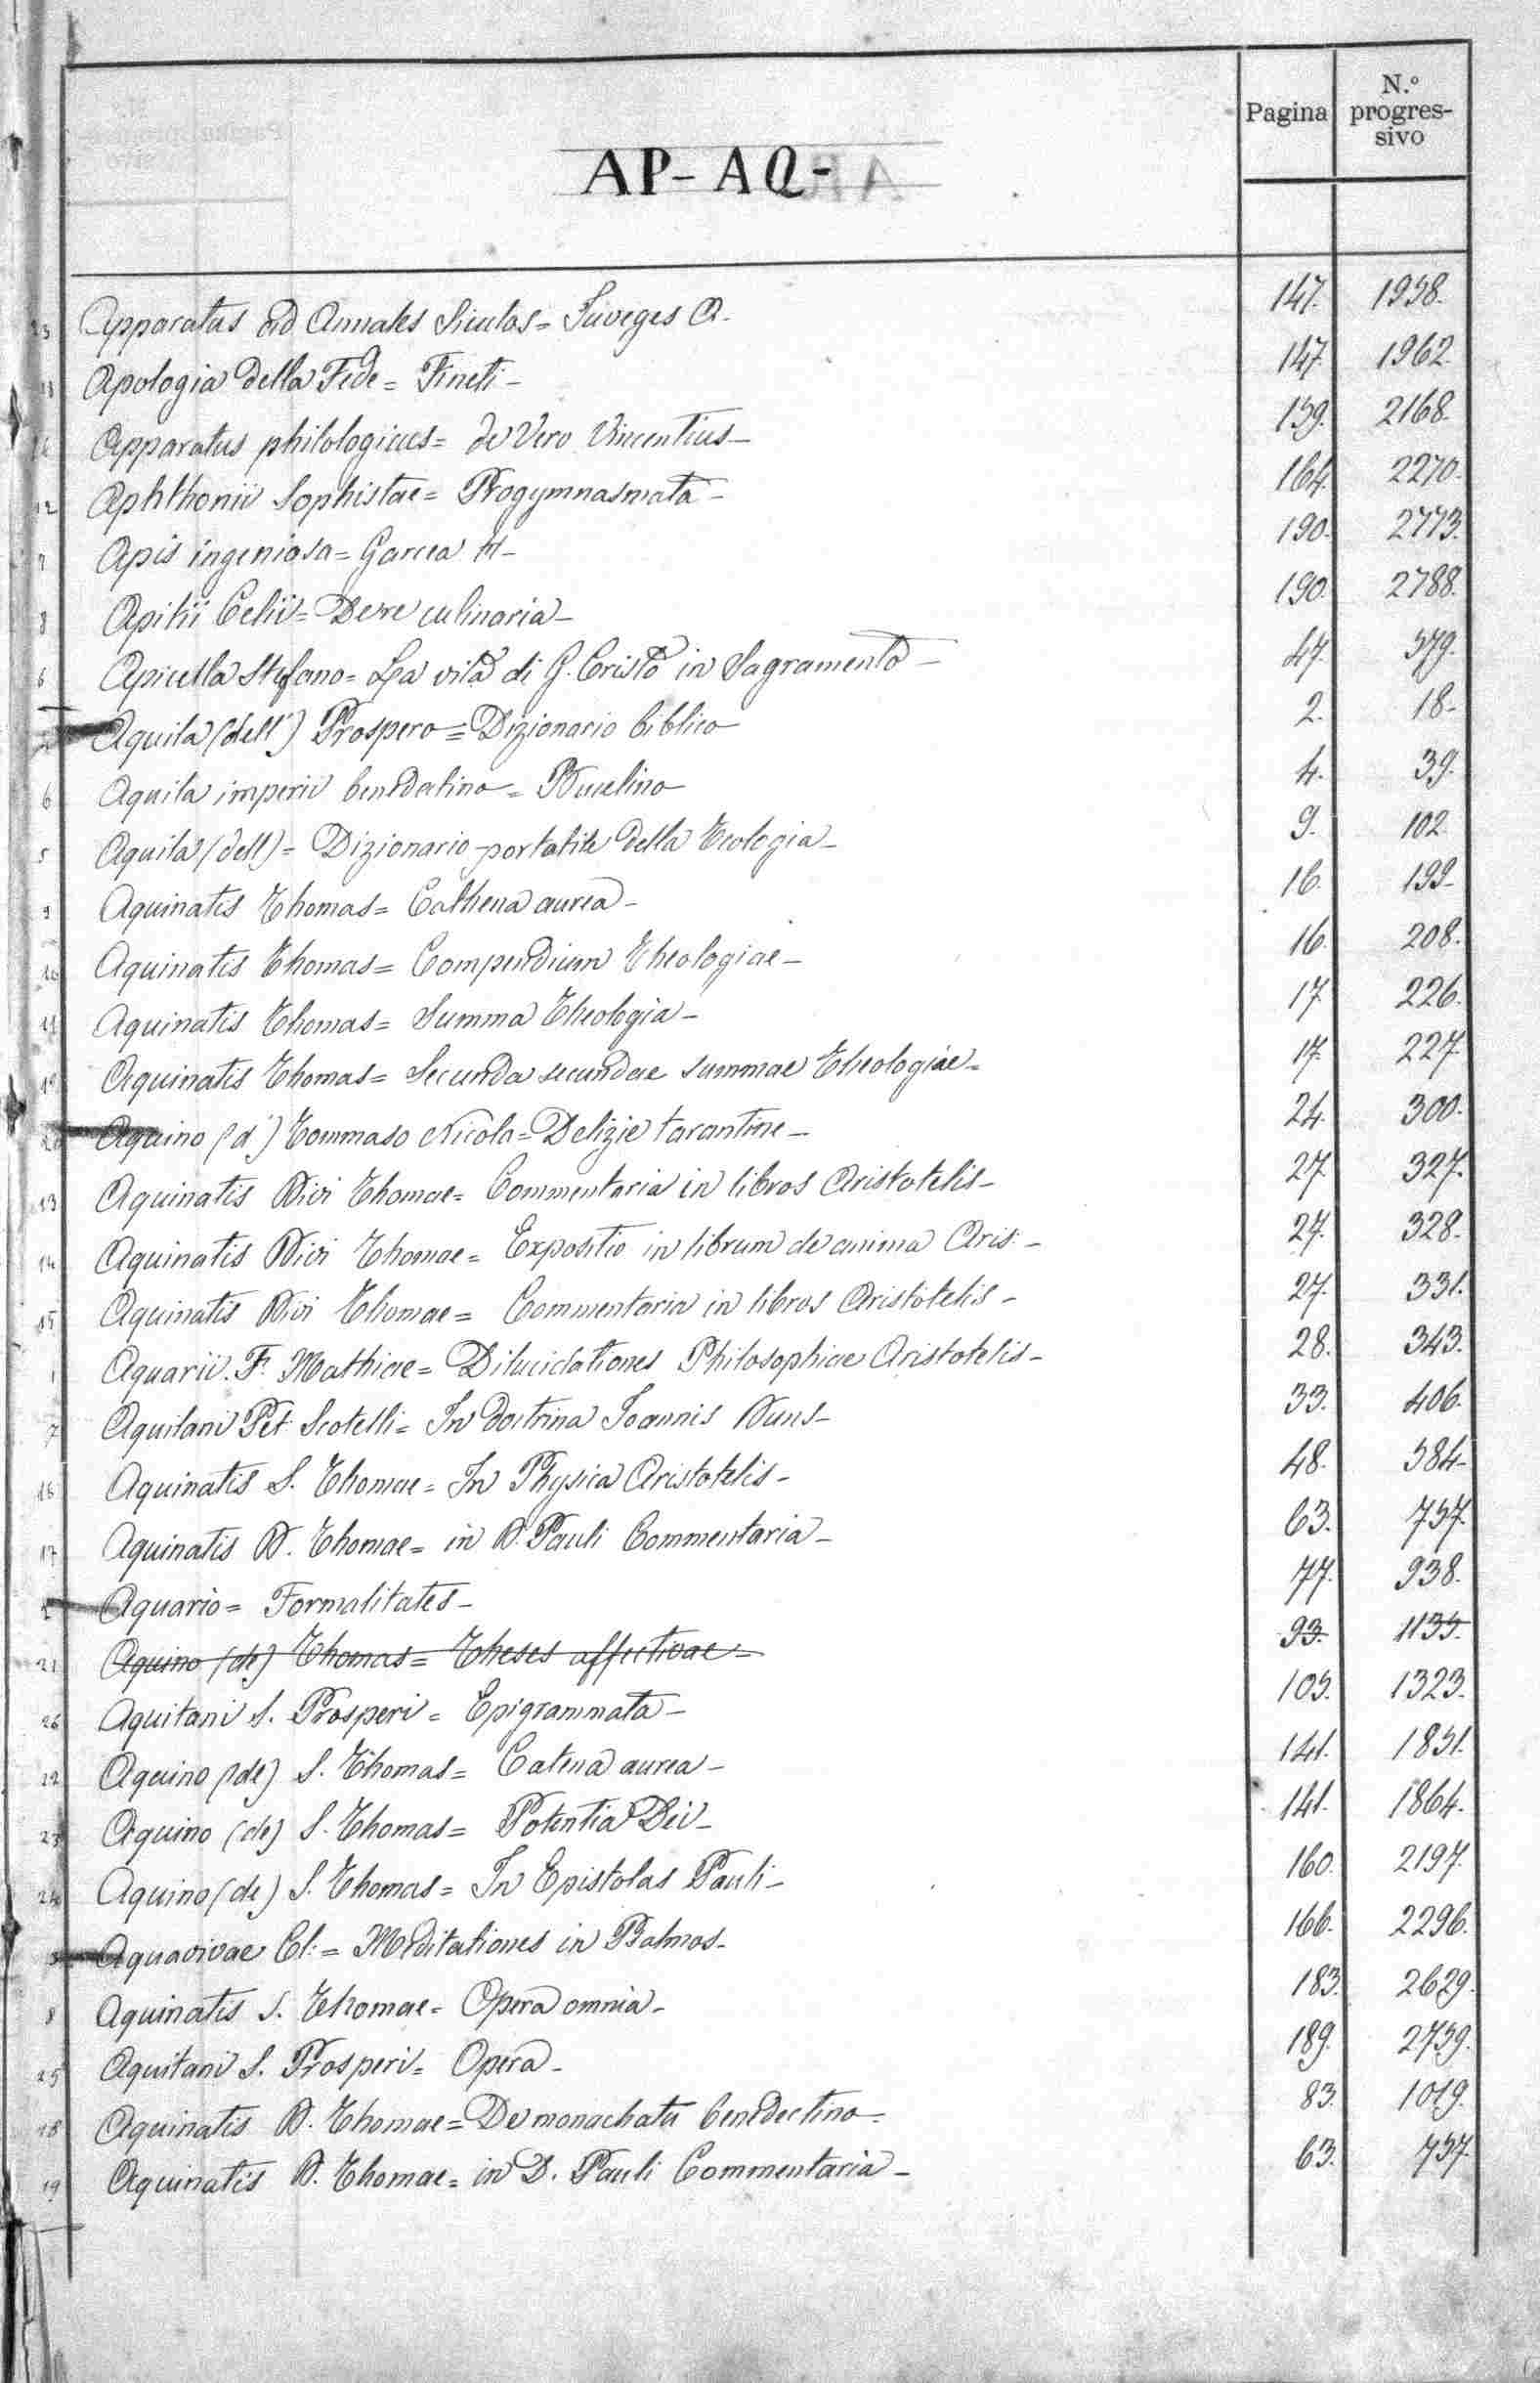 Pagina
N.º progres-
sivo
AP- AQ-
Apparatus ad Annales Siculos= Inveges A. 147. 1958.
11 Apologia della Fede= Fineti- 147. 1962.
Apparatus philologicus= de Vero Vincentius- 159. 2168.
12 Aphthonii Sophistae= Progymnasmata- 164. 2270.
7 Apis ingeniosa= Garcea M- 190. 2773.
8 Apitii Celii= De re culinaria- 190. 2788.
6 Apicella Stefano= La vita di G. Cristo in Sagramento- 47. 579.
Aquila (dell') Prospero= Dizionario biblico 2. 18-
6 Aquila imperii benedectino= Bucelino 4. 39.
5 Aquila (dell)= Dizionario portatile della Teologia- 9. 102.
9 Aquinatis Thomas= Cathena aurea- 16. 199-
10 Aquinatis Thomas= Compendium Theologiae- 16. 208.
11 Aquinatis Thomas= Summa Theologia- 17. 226.
12 Aquinatis Thomas= Secunda secundae summae Theologiae= 17. 227.
20 Aquino (d') Tommaso Nicola= Delizie tarantine- 24. 300.
13 Aquinatis Divi Thomae= Commentaria in libros Aristotelis- 27. 327.
14 Aquinatis Divi Thomae= Expositio in librum de anima Aris:- 27. 328.
15 Aquinatis Divi Thomae= Commentaria in libros Aristotelis- 27. 331.
1 Aquarii. F. Mathiae= Dilucidationes Philosophiae Aristotelis- 28. 343.
7 Aquilani Pet Scotelli= In doctrina Joannis Duns- 33. 406.
16 Aquinatis S. Thomae= In Physica Aristotelis- 48. 584-
17 Aquinatis D. Thomae= in D. Pauli Commentaria- 63. 757.
2 Aquario= Formalitates- 77. 938.
21 Aquino (de) Thomas= Theses affectivae= 93. 1135.
26 Aquitani S. Prosperi= Epigrammata- 105. 1323.
22 Aquino (de) S. Thomas= Catena aurea- 141. 1851.
23 Aquino (de) S. Thomas= Potentia Dei- 141. 1864.
24 Aquino (de) S. Thomas= In Epistolas Pauli- 160. 2197.
3 Aquavivae Cl:= Meditationes in Psalmos- 166. 2296.
8 Aquinatis S. Thomae= Opera omnia- 183. 2629.
25 Aquitani S. Prosperi= Opera- 189. 2759.
18 Aquinatis D. Thomae= De monachatu benedectino= 83. 1019.
19 Aquinatis D. Thomae= in D. Pauli Commentaria- 63. 757.